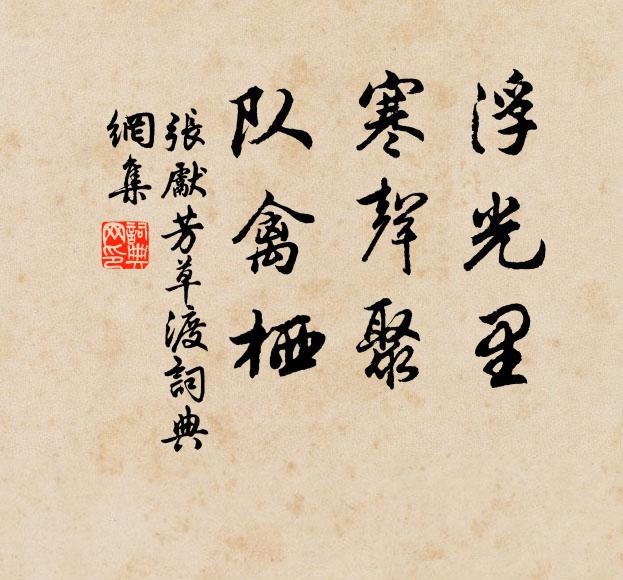 浮光里
寒聲聚
队禽栖
張獻芳草渡詞典
網集
詞典
网印